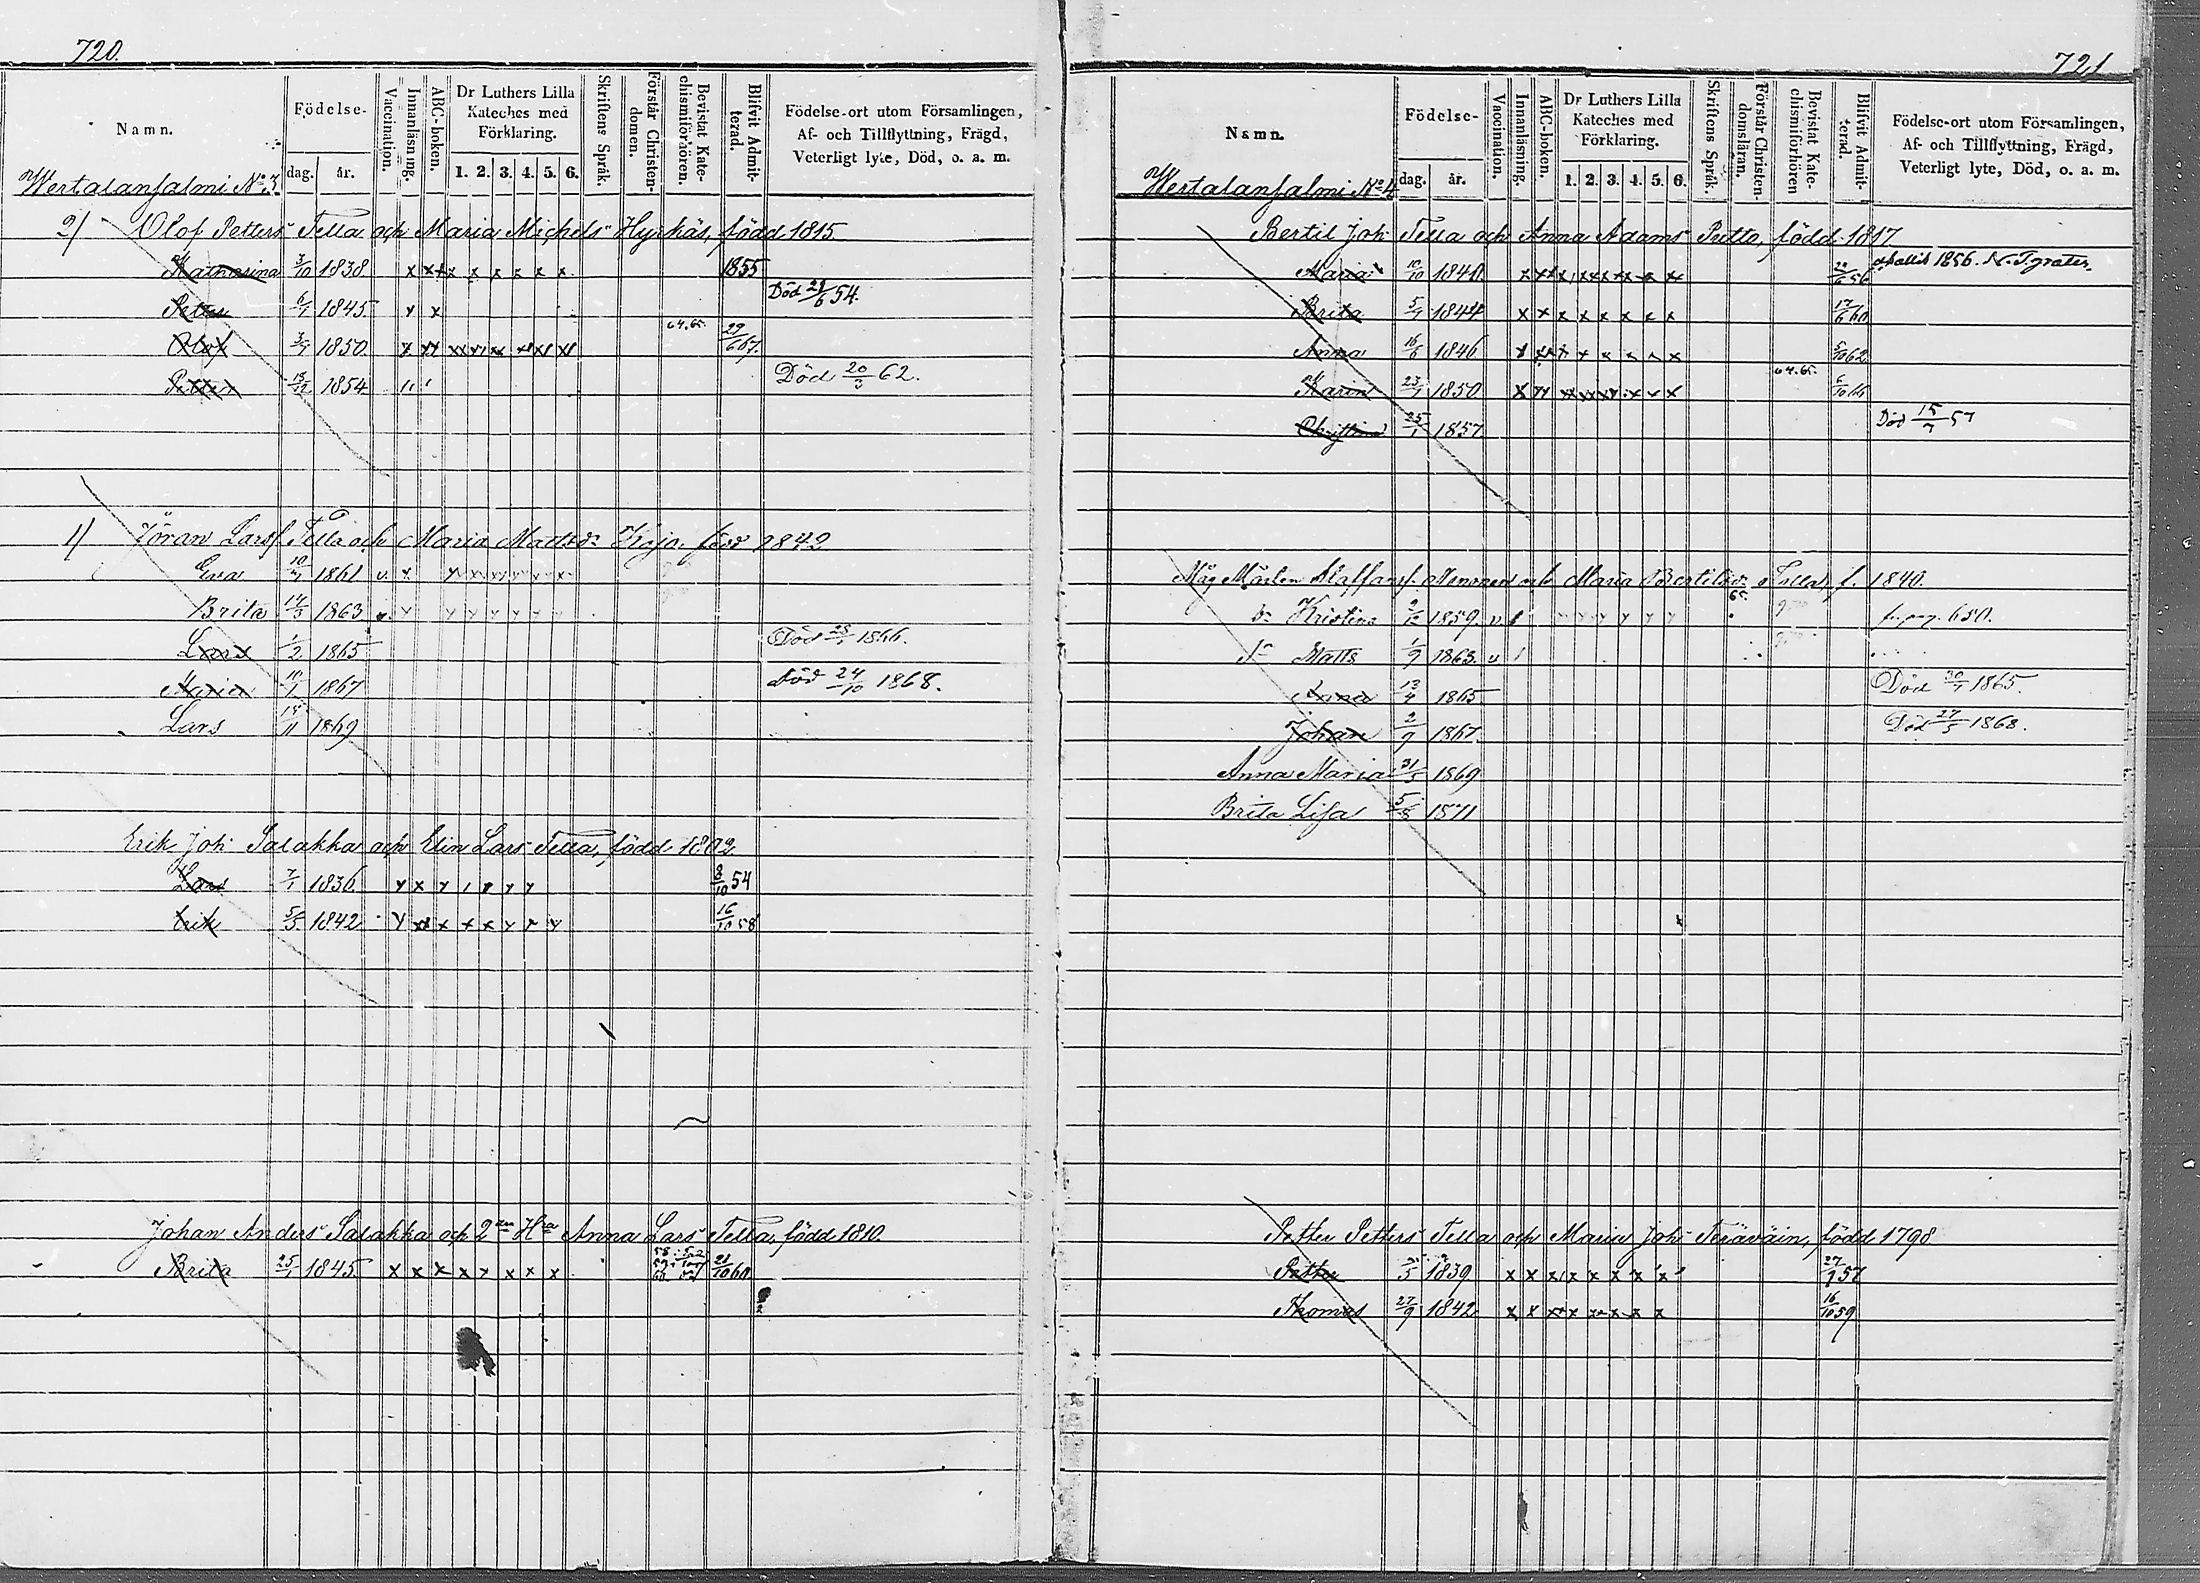 720.
Namn.
Födelse-
dag. år.
Vaccination.
Innanläsning.
ABC-boken.
Dr Luthers Lilla Kateches med Förklaring.
1. 2. 3. 4. 5. 6.
Skriftens Språk.
Förstår Christendomen.
Bevistat Katechismiförhören.
Blifvit Admitterad.
Födelse-ort utom Församlingen,
Af- och Tillflyttning, Frägd,
Veterligt lyte, Död, o. a. m.
Wertalansalmi No. 3
2) Olof Petters Tella och Maria Michels Hyrkäs, född 1815.
Katharina 3/10 1838 x x x x x x x x x 1855
Petter 6/7 1845 x x Död 28/6 54.
Olof 3/7 1850. 64.65. 29/6 67.
Petter 13/12 1854 Död 20/3 62.
1) Jöran Larss. Tella och Maria Mattsdr Kojo. född 1842
Eva 10/7 1861 v. x
Brita 14/3 1863 v.
Lars 1/2 1865 Död 1866.
Maria 10/1 1867 Död 24/10 1868.
Lars 18/11 1869
Erik Joh Salakka och Elin Lars Tella, född 1802
Lars 7/1 1836 8/10 54
Erik 5/5 1842 16/10 58
Johan Anders Salakka och 2dra Hra Anna Lars Tella, född 1810.
Brita 25/1 1845. x x x x x x x x 21/10 60
721
Namn.
Födelse-
dag. år.
Vaccination.
Innanläsning.
ABC-boken.
Dr Luthers Lilla Kateches med Förklaring.
1. 2. 3. 4. 5. 6.
Skriftens Språk.
Förstår Christendomsläran.
Bevistat Katechismiförhören
Blifvit Admitterad.
Födelse-ort utom Församlingen,
Af- och Tillflyttning, Frägd,
Veterligt lyte, Död, o. a. m.
Wertalansalmi No. 4
Bertil Joh Tella och Anna Adams Putto, född 1817
Maria 10/10 1840. 56 1856.
Brita 5/7 1844 x x x x x x x x 17/6 60
Anna 16/6 1846 5/10 62
Karin 23/7 1850 64.65. 6/10 66
Christina 25/1 1857 Död 15/7 57
Måg Mårten Staffanss. och Maria Bertilsdr Tella, f. 1840.
dr Kristina 2/12 1859. v. 65. pag. 650.
Sn Matts 1/9 1863. v
Anna 13/4 1865 Död 1865.
Johan 2/9 1867 Död 27/5 1868.
Anna Maria 31/5 1869
Brita Lisa 5/8 1871
Petter Petters Tella och Maria Joh Teräväin, född 1798
Petter 1839 27/9 57
Thomas 27/9 1842 16/10 59